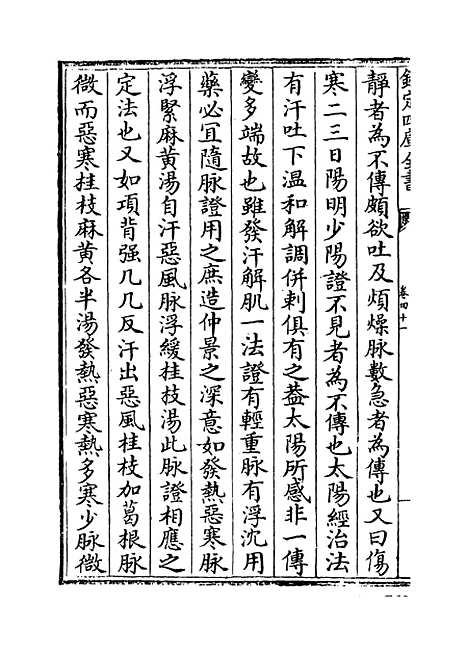 欽定四庫全書
卷四十一
靜者為不傳頗欲吐及煩燥脈數急者為傳也又曰傷
寒二三日陽明少陽證不見者為不傳也太陽經治法
有汗吐下温和解調併刺俱有之葢太陽所感非一傳
變多端故也雖發汗解肌一法證有輕重脈有浮沈用
藥必宜隨脈證用之庶造仲景之深意如發熱惡寒脈
浮緊麻黃湯自汗惡風脈浮緩桂枝湯此脈證相應之
定法也又如項背强几几反汗出惡風桂枝加葛根脈
微而惡寒桂枝麻黃各半湯發熱惡寒熱多寒少脈微